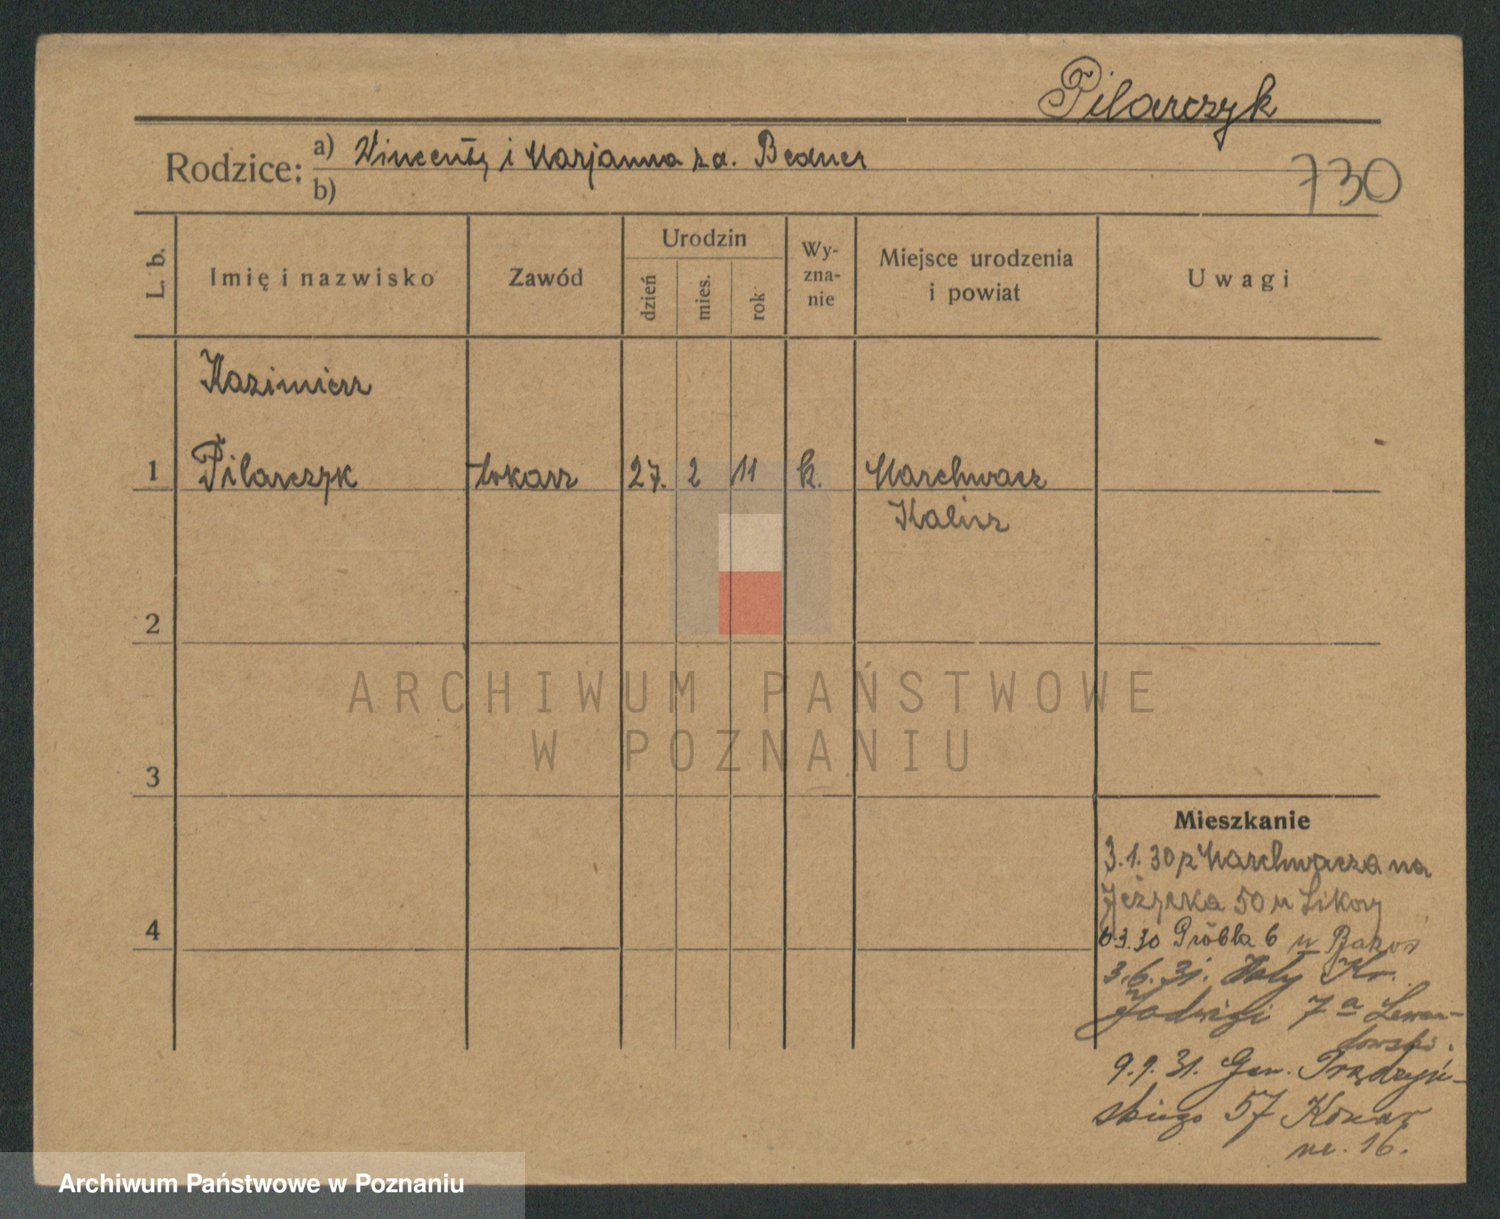 Pilarczyk
Rodzice: a) Wincenty i Marjanna z d. Bedner
b)
730
L. b.
Imię i nazwisko
Zawód
Urodzin
dzień
mies.
rok
Wy-
zna-
nie
Miejsce urodzenia
i powiat
Uwagi
Kazimierz
1 Pilarczyk tokarz 27. 2 11 k. Marchwacz
Kalisz
2
3
4
ARCHIWUM PAŃSTWOWE
W POZNANIU
Mieszkanie
3.1.30 z Marchwacza na
Jeżycka 50
3.30 Grobla 6 u
3.6.31. Kr.
Jadwigi 7 a Lewan-
dowski.
9.9.31. Gen. Prądzyń-
skiego 57
nr. 16.
Archiwum Państwowe w Poznaniu